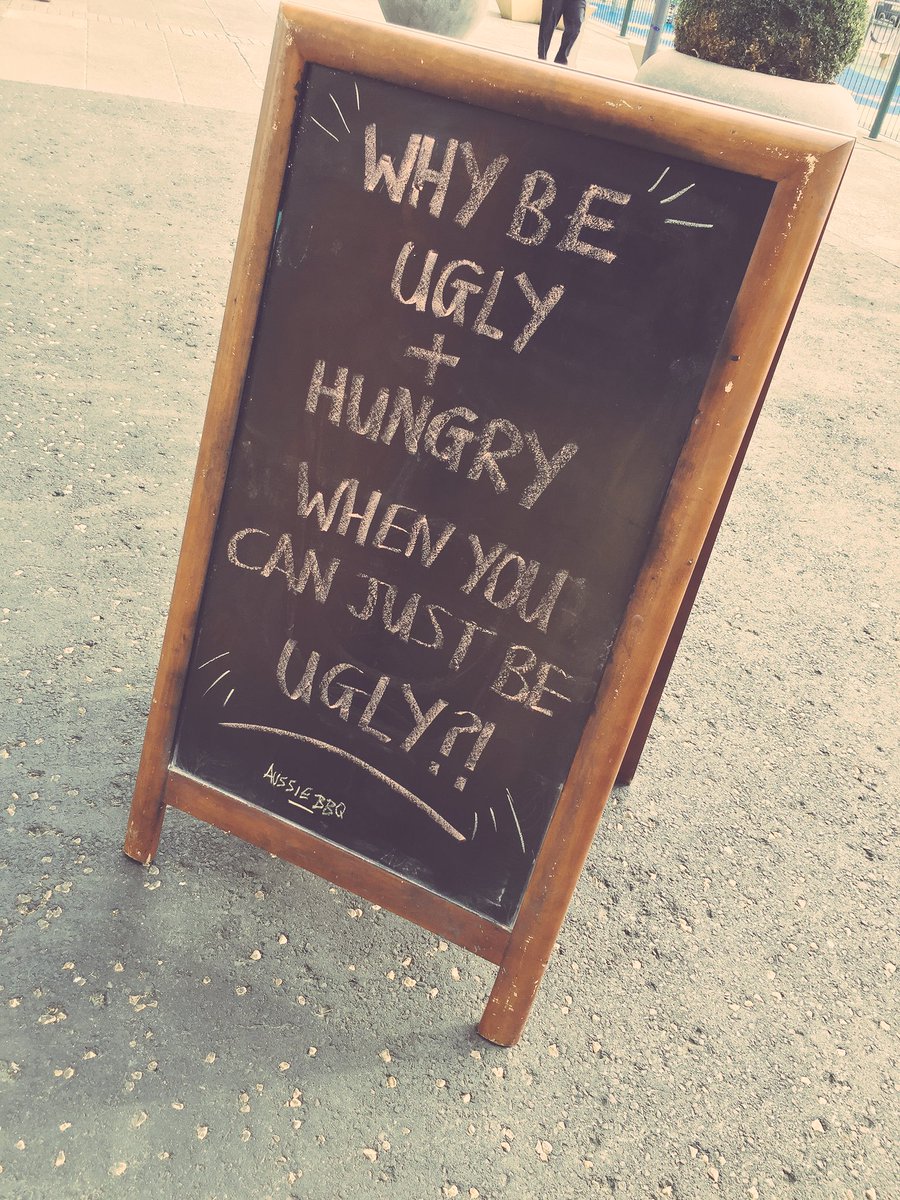 WHY BE
UGLY
+
HUNGRY
WHEN YOU
CAN JUST BE
UGLY?!
AUSSIE BBQ